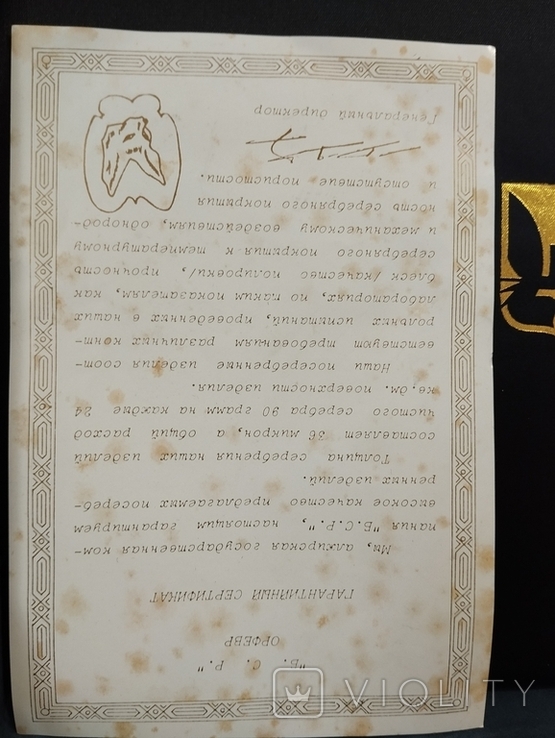 "Б. С. Р."
ОРФЕВР
ГАРАНТИЙНЫЙ СЕРТИФИКАТ
Мы, алжирская государственная ком-
пания "Б.С.Р.", настоящим гарантируем
высокое качество предлагаемых посереб-
ренных изделий.
Толщина серебрения наших изделий
составляет 36 микрон, а общий расход
чистого серебра 90 грамм на каждые 24
кв.дм. поверхности изделия.
Наши посеребренные изделия соот
ветствуют требованиям различных конт-
рольных испытаний, проведенных в наших
лабораториях, по таким показателям, как
блеск /качество полировки/, прочность
серебряного покрытия к температурному
и механическому воздействиям, однород-
ность серебряного покрытия
и отсутствие пористости.
Генеральный директор
VIOLITY